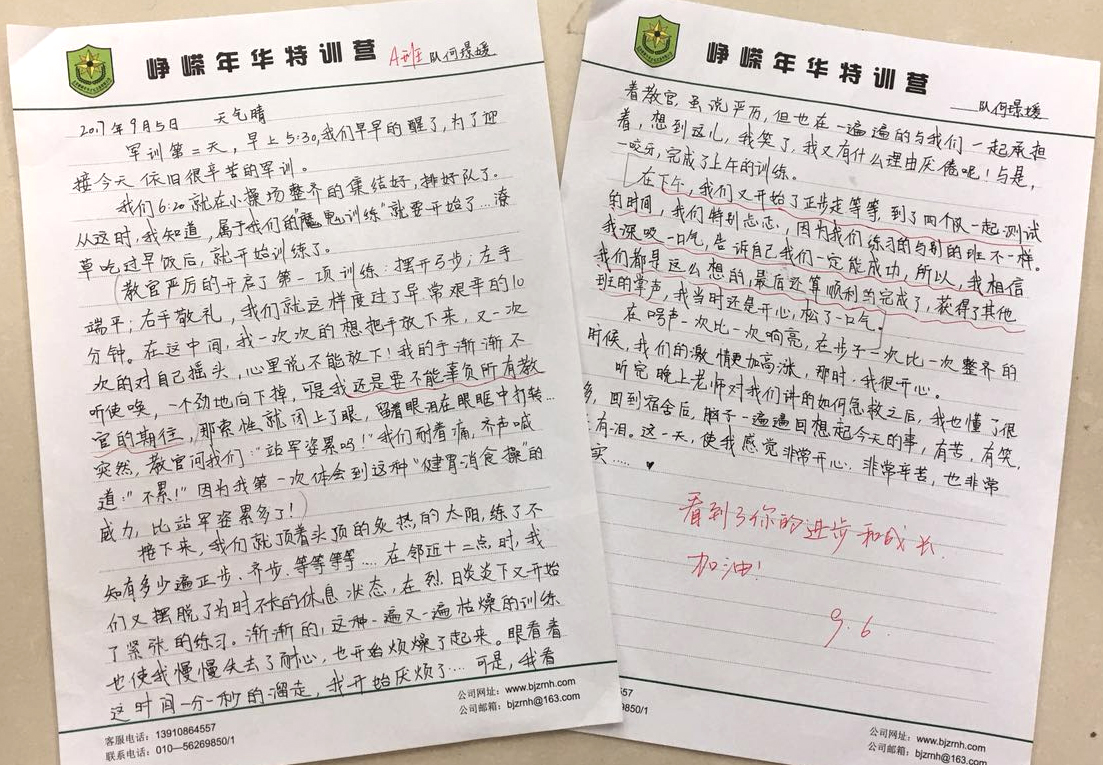 峥嵘年华特训营 A班 队何璟媛
2017年9月5日 天气晴
军训第二天，早上5:30,我们早早的醒了，为了迎
接今天依旧很辛苦的军训。
我们6:20就在小操场整齐的集结好，排好队了。
从这时，我知道，属于我们的"魔鬼训练"就要开始了…潦
草吃过早饭后，就开始训练了。
教官严厉的开启了第一项训练：摆开弓步；左手
端平；右手敬礼，我们就这样度过了异常艰辛的10
分钟。在这中间，我一次次的想把手放下来，又一次
次的对自己摇头，心里说不能放下！我的手渐渐不
听使唤，一个劲地向下掉，可是我还是要不能辜负所有教
官的期往，那索性就闭上了眼，留着眼泪在眼眶中打转…
突然，教官问我们："站军姿累吗！"我们耐着痛，齐声喊
道："不累！"因为我第一次体会到这种"健胃消食操"的
威力，比站军姿累多了！
接下来，我们就顶着头顶的炙热的太阳，练了不
知有多少遍正步、齐步、等等等等…在邻近十二点时，我
们又摆脱了为时不长的休息状态，在烈日炎炎下又开始
了紧张的练习。渐渐的，这种一遍又一遍枯燥的训练
也使我慢慢失去了耐心，也开始烦燥了起来。眼看着
这时间一分一秒的溜走，我开始厌烦了…可是，我看
客服电话：13910864557
联系电话：010—56269850/1
公司网址：www.bjzrnh.com
公司邮箱：bjzrnh@163.com
峥嵘年华特训营
队何璟媛
着教官，虽说严厉，但也在一遍遍的与我们一起承担
着，想到这儿，我笑了，我又有什么理由厌倦呢！与是，
一咬牙，完成了上午的训练。
在下午，我们又开始了正步走等等，到了两个队一起测试
的时间，我们特别忐忑，因为我们练习的与别的班不一样。
我深吸一口气，告诉自己我们一定能成功，所以，我相信
我们都是这么想的，最后还算顺利的完成了，获得了其他
班的掌声，我当时还是开心，松了一口气。
在口号声一次比一次响亮，在步子一次比一次整齐的
时候，我们的激情更加高涨，那时，我很开心。
听完晚上老师对我们讲的如何急救之后，我也懂了很
多，回到宿舍后，脑子一遍遍回想起今天的事，有苦，有笑，
有泪。这一天，使我感觉非常开心，非常辛苦，也非常
实……♥
看到了你的进步和成长.
加油！
9.6.
557
9850/1
公司网址：www.bjzrnh.com
公司邮箱：bjzrnh@163.com